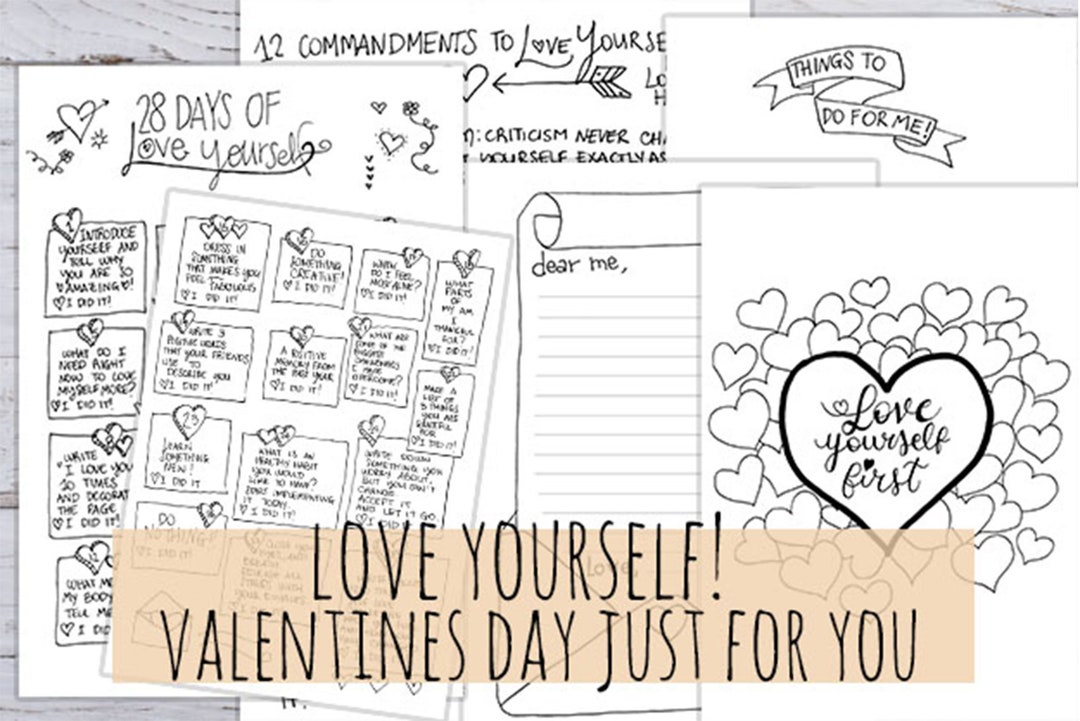 12 COMMANDMENTS TO Love Yourse
CRITICISM NEVER CHA
YOURSELF EXACTLY AS
THINGS TO
DO FOR ME!
28 DAYS OF
Love yourself
1
INTRODUCE
YOURSELF AND
TELL WHY
YOU ARE SO
AMAZING!
I DID IT!
WHAT DO I
NEED RIGHT
NOW TO LOVE
MYSELF MORE?
I DID IT!
WRITE
"I LOVE YOU
20 TIMES
AND DECORAT
THE PAGE
I DID IT!
WHAT
MY BODY
TELL ME
I DID
DRESS IN
SOMETHING
THAT MAKES YOU
FEEL FABULOUS
I DID IT!
DO
SOMETHING
CREATIVE!
I DID IT!
WHEN
DO I FEEL
MOST ALIVE?
I DID IT!
WHAT
PARTS
OF
MY AM
I
THANKFUL
FOR?
I DID IT!
WRITE 3
POSITIVE WORDS
THAT YOUR FRIENDS
USE TO
DESCRIBE YOU
I DID IT!
A POSITIVE
MEMORY FROM
THE PAST YEAR
I DID IT!
WHAT ARE
SOME OF THE
BIGGEST
I HAVE
OVERCOME?
I DID IT!
MAKE A
LIST OF
3 THINGS
YOU ARE
GRATEFUL
FOR
I DID IT!
23
LEARN
SOMETHING
NEW!
I DID IT
WHAT IS AN
HEALTHY HABIT
YOU WOULD
LIKE TO HAVE?
START IMPLEMENTING
IT TODAY.
I DID IT!
WRITE DOWN
SOMETHING YOU
WORRY ABOUT,
BUT YOU CAN'T
CHANGE.
ACCEPT IT
AND LET IT GO
I DID IT!
DO
NOTHING!
I DID IT!
dear me,
Love,
Love
yourself
first
LOVE YOURSELF!
VALENTINES DAY JUST FOR YOU